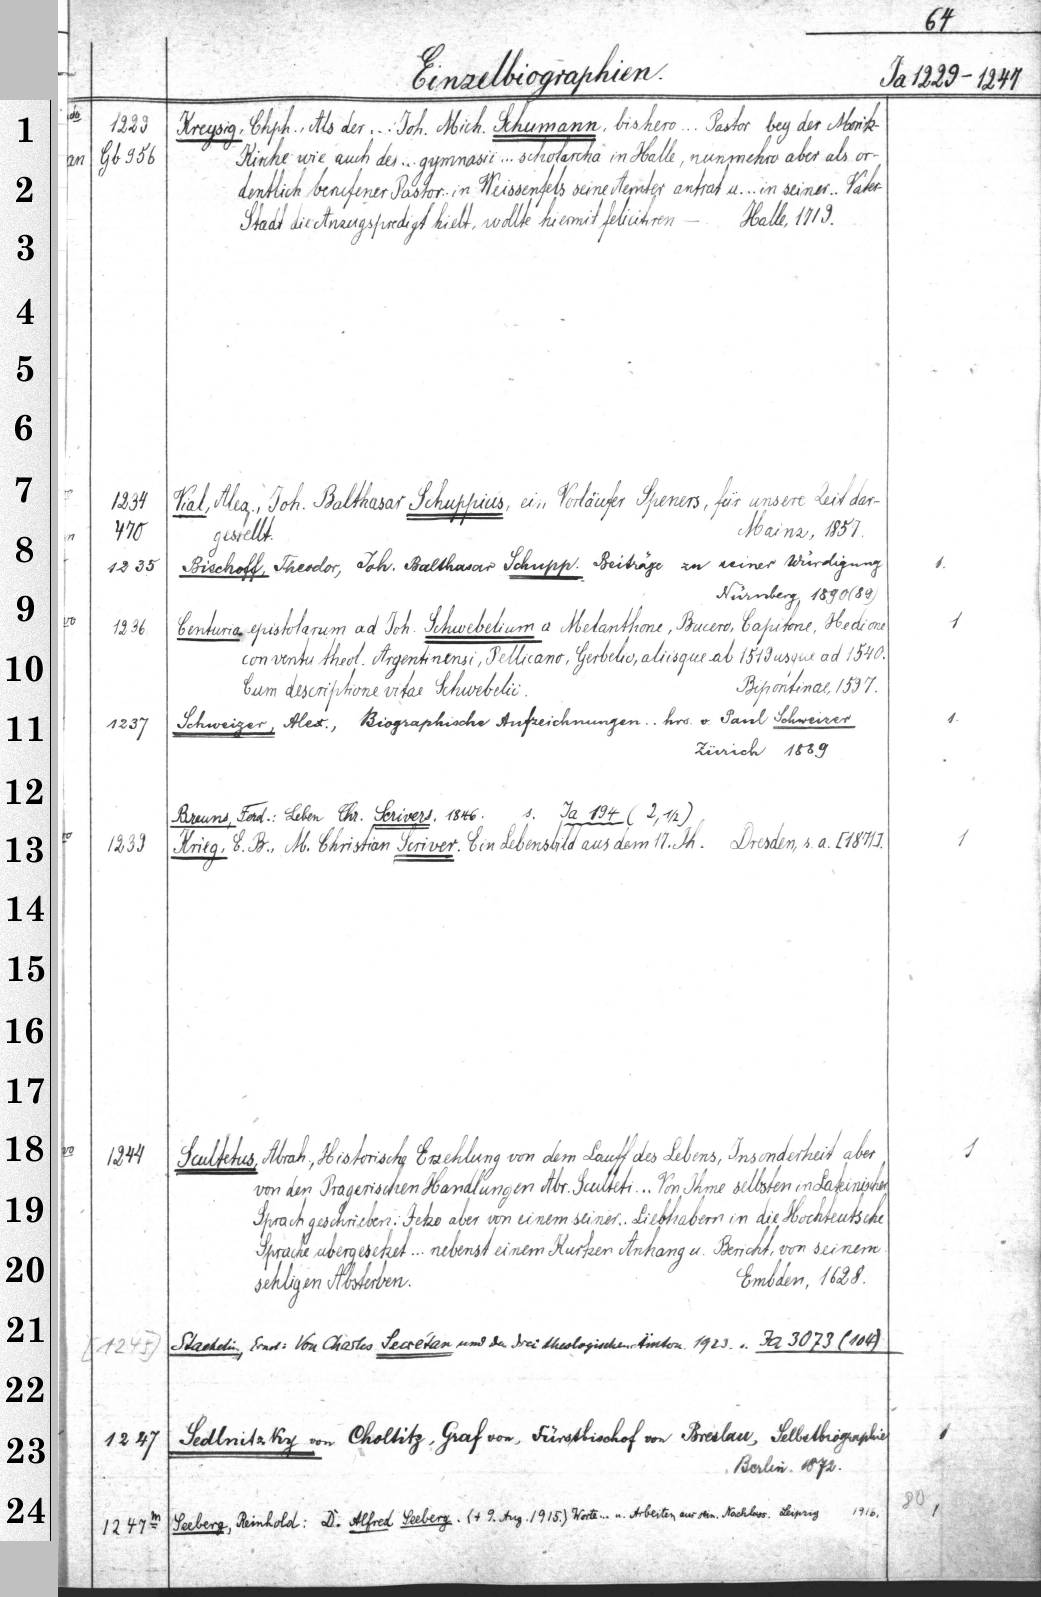 64
Einzelbiographien.
Ja 1229-1247
1
1229
Kreysig, Chph., Als der ... Joh. Mich. Schumann, bishero ... Pastor bey der Moritz-
Gb 956
Kirche wie auch des .. gymnasii ... scholarcha in Halle, nunmehro aber als or-
2
dentlich berufener Pastor in Weissenfels seine Aemter antrat u... in seiner .. Vater-
Stadt die Anzugspredigt hielt, wollte hiermit felicitiren — Halle, 1719.
3
4
5
6
7
1234
Vial, Alex., Joh. Balthasar Schuppius, ein Vorläufer Speners, für unsere Zeit dar-
470
gestellt. Mainz, 1857.
8
1235
Bischoff, Theodor, Joh. Balthasar Schupp. Beiträge zu seiner Würdigung
1.
Nürnberg, 1890(89)
9
1236
Centuria epistolarum ad Joh. Schwebelium a Melanthone, Bucero, Capitone, Hedione
1
conventu theol. Argentinensi, Pellicano, Gerbelio, aliisque ab 1519 usque ad 1540.
10
Cum descriptione vitae Schwebelii. Bipontinae, 1597.
11
1237
Schweizer, Alex., Biographische Aufzeichnungen .. hrs. v. Paul Schweizer
1.
Zürich 1889
12
Breuns, Ferd.: Leben Chr. Scrivers. 1846. s. Ja 194 (2, 1/2)
13
1239
Krieg, C. B., M. Christian Scriver. Ein Lebensbild aus dem 17. Jh. Dresden, s. a. [1871].
1
14
15
16
17
18
1244
Scultetus, Abrah., Historische Erzehlung von dem Lauff des Lebens, Insonderheit aber
1
von den Pragerischen Handlungen Abr. Sculteti ... Von Ihme selbsten in Lateinischer
19
Sprach geschrieben: Jetzo aber von einem seiner .. Liebhabern in die Hochteutsche
Sprache ubergesetzet ... nebenst einem Kurtzen Anhang u. Bericht, von seinem
20
sehligen Absterben. Embden, 1628.
21
[1245]
Staehelin, Ernst: Von Charles Secrétan und den drei theologischen 1923. s. Ja 3073 (104)
22
23
1247
Sedlnitzky von Choltitz, Graf von, Fürstbischof von Breslau, Selbstbiographie
1
Berlin. 1872.
24
1247m
Seeberg, Reinhold: D. Alfred Seeberg. († 9. Aug. 1915.) Worte ... u. Arbeiten aus sein. Nachlass. Leipzig 1916.
80
1